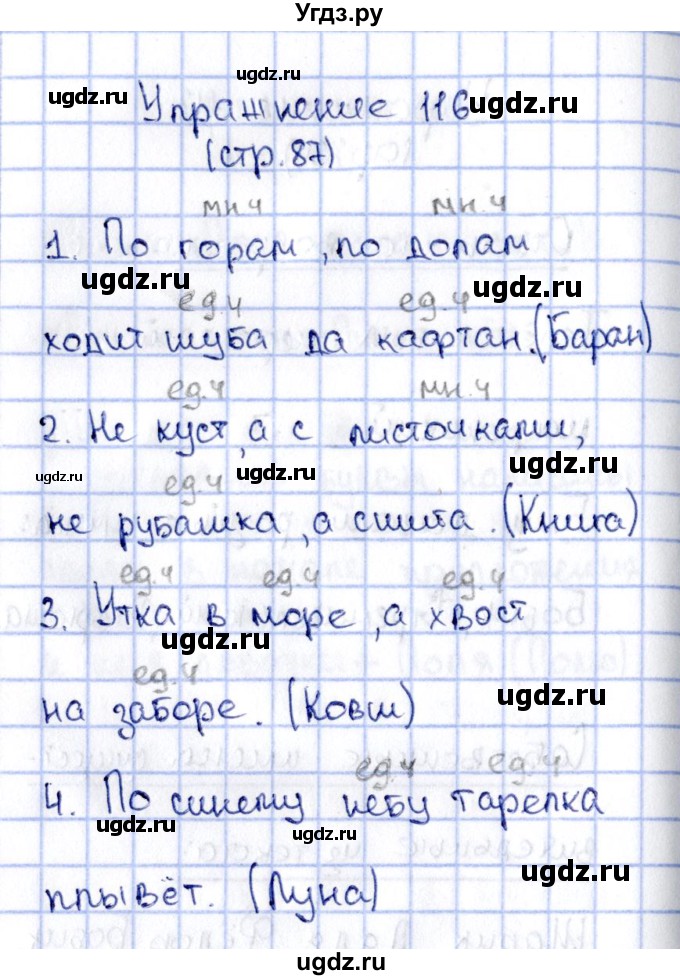 Угдз.ру
ugdz.ru
ugdz.ru
Упражнение 116 ugdz.ru
(стр.87)
мн.ч мн.ч
1. По горам, по долам
ugdz.ru ugdz.ru
ед.ч ед.ч
ходит шуба да кафтан. (Баран)
ед.ч мн.ч
2. Не куст, а с листочками,
ugdz.ru ugdz.ru ugdz.ru
ед.ч
не рубашка, а сшита. (Книга)
ед.ч ед.ч ед.ч
3. Утка в море, а хвост
ugdz.ru
ед.ч ugdz.ru
на заборе. (Ковш)
ед.ч ед.ч
4. По синему небу тарелка
ugdz.ru ugdz.ru
ugdz.ru
плывёт. (Луна)
ugdz.ru ugdz.ru